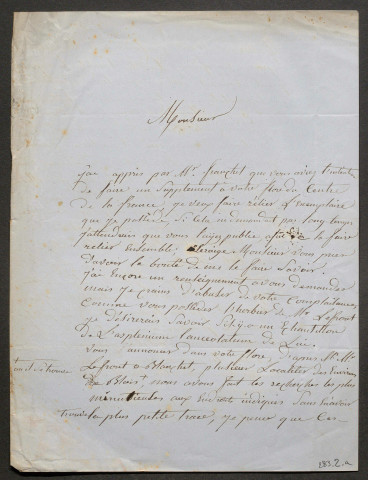 Monsieur
J'ai appris par Mr. Franchet que vous aviez l'intention
de faire un Supplement a votre flore du Centre
de la france, je veux faire relier l'exemplaire
que je possède, Si cela ne demandait pas long temps
j'attendrais que vous l'ayez publié afin de le faire
relier ensemble. Monsieur vous prier
d'avoir la bonté de me le faire Savoir.
J'ai encor un renseignement a vous demander
mais je crains d'abuser de votre Complaisance,
Comme vous possédez l'herbier de Mr. Lefrou
je désirerais Savoir S'il y a un Echantillon
De L'asplenium Lanceolatum de Lui.
Vous annoncez dans votre flore, d'après Mr. Mr.
Lefrou & Blanchet, plusieurs Localités des Environs
de Blois, nous avons fait les recherches les plus
minutieuses aux endroits indiqués Sans en avoir
trouvé la plus petite trace, je pense que Ces
233.2.a